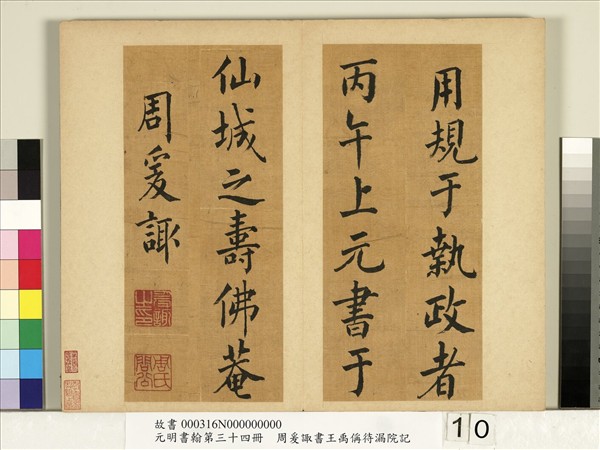 用規于執政者
丙午上元書于
仙城之壽佛菴
周爰諏
周氏
故書 000316N000000000
元明書翰第三十四冊 周爰諏書王禹偁待漏院記
10